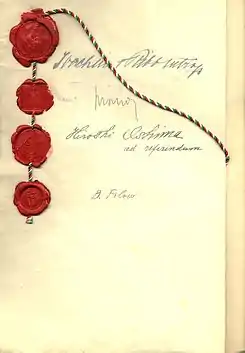 Joachim v Ribbentrop
Hiroshi Oshima
ad referendum
B. Filow